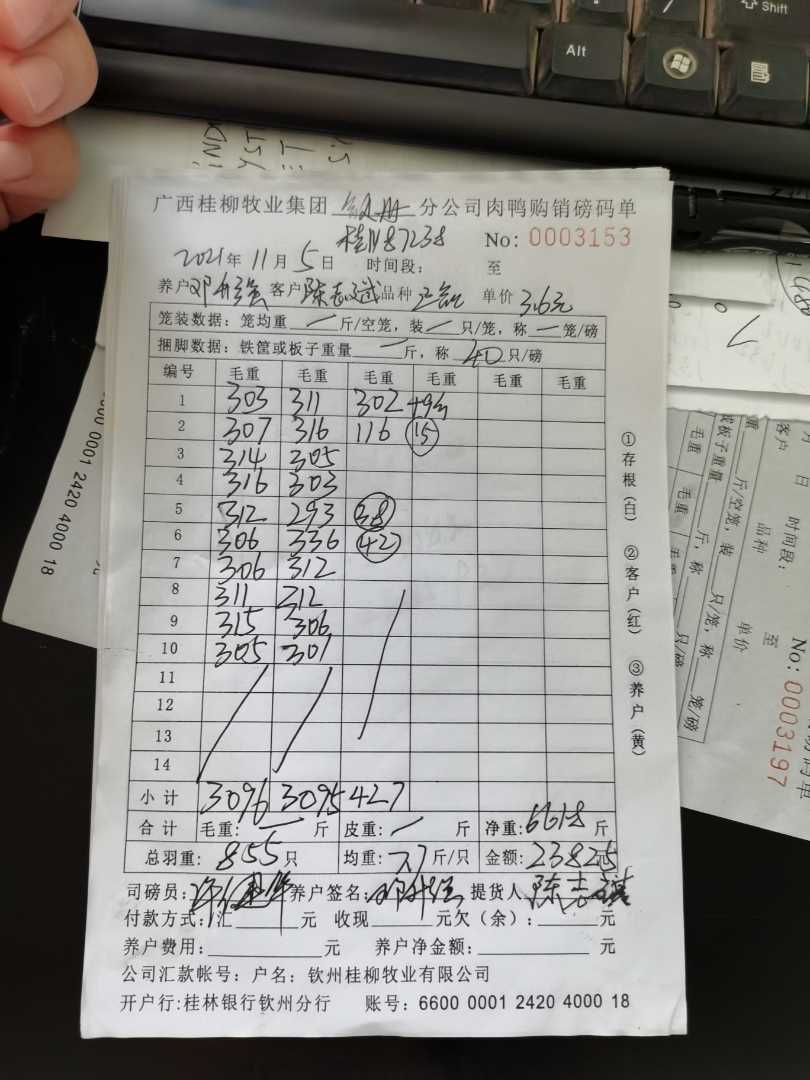 Alt
Shift
广西桂柳牧业集团 钦州 分公司肉鸭购销磅码单
No: 0003153
2021年 11月 5日 时间段: 至
养户 客户 陈志斌 品种 单价 3.6元
笼装数据: 笼均重 一 斤/空笼, 装 一 只/笼, 称 一 笼/磅
捆脚数据: 铁筐或板子重量 一 斤, 称 40 只/磅
编号 毛重 毛重 毛重 毛重 毛重 毛重
1 303 311 302
2 307 316 116 15
3 314 305
4 316 303
5 312 293 38
6 306 336 427
7 306 312
8 311 312
9 315 306
10 305 301
11
12
13
14
小计 3096 3095 427
合计 毛重: 一 斤 皮重: 一 斤 净重: 6618 斤
总羽重: 855 只 均重: 7.7 斤/只 金额: 23825
司磅员: 养户签名: 提货人
付款方式: 汇 元 收现 元欠（余）: 元
养户费用: 元 养户净金额: 元
公司汇款帐号: 户名: 钦州桂柳牧业有限公司
开户行:桂林银行钦州分行 账号: 6600 0001 2420 4000 18
①存根（白） ②客户（红） ③养户（黄）
00 0001 2420 4000 18
No: 0003197